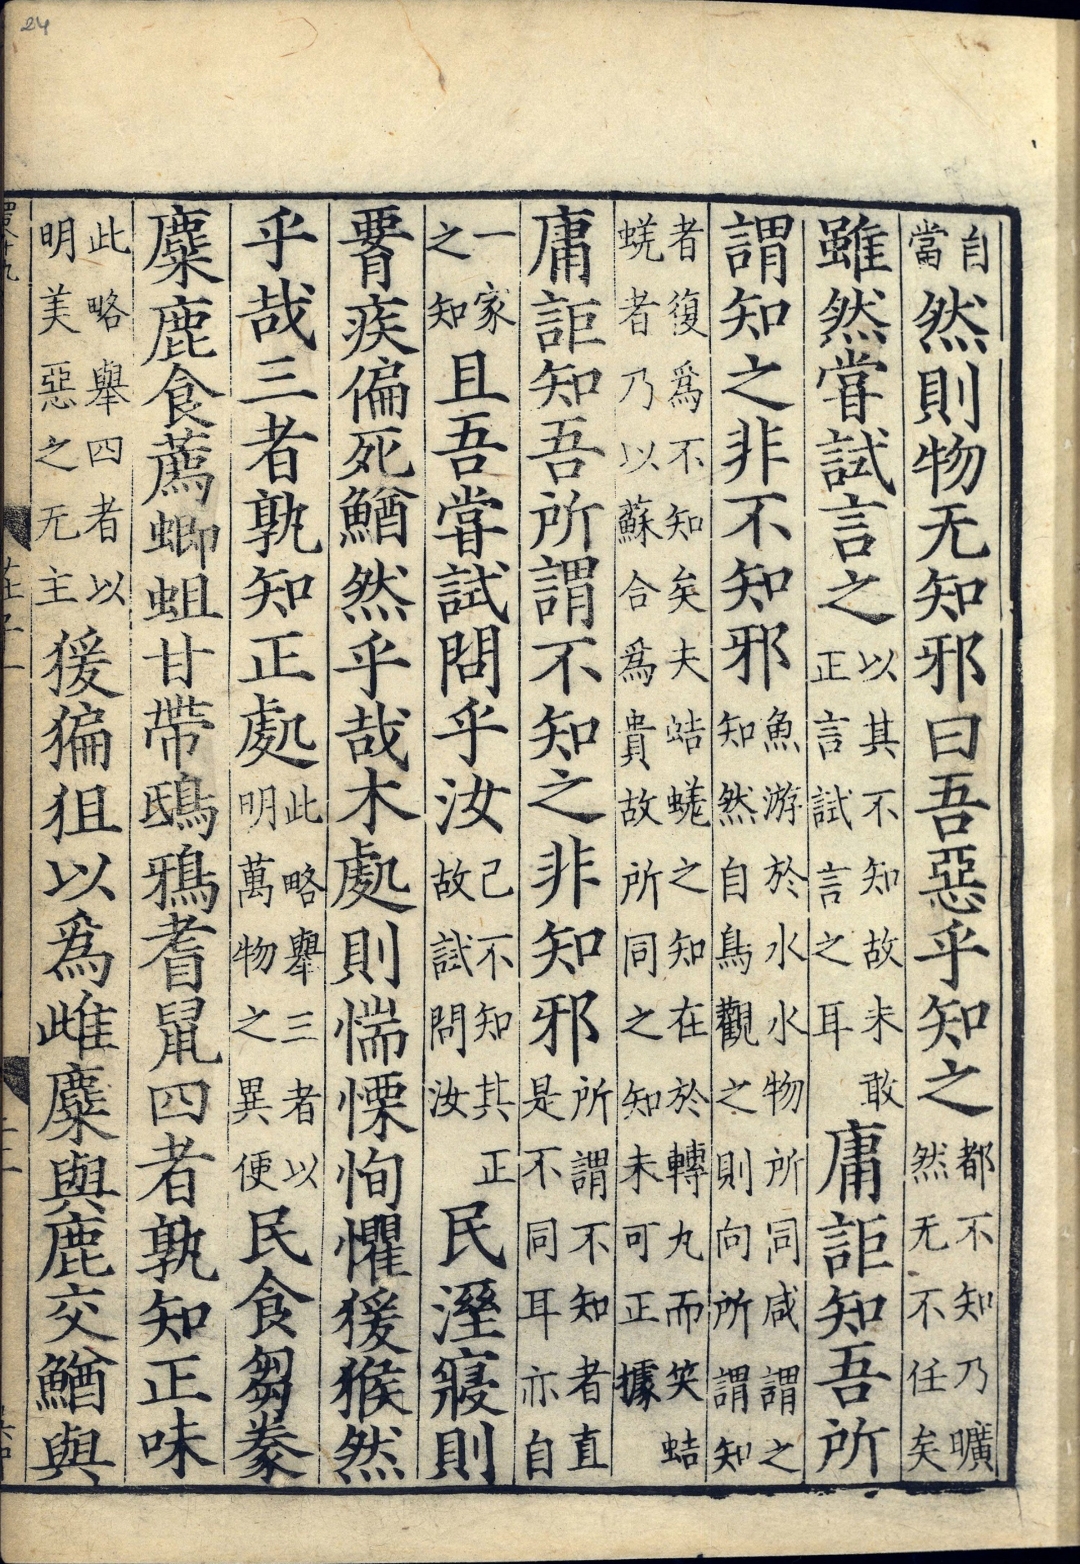 24
自當然則物无知邪曰吾惡乎知之都不知乃曠然无不任矣
雖然嘗試言之以其不知故未敢正言試言之耳庸詎知吾所
謂知之非不知邪魚游於水水物所同咸謂之知然自鳥觀之則向所謂知
者復爲不知矣夫蛣蜣之知在於轉丸而笑蛣蜣者乃以蘇合爲貴故所同之知未可正據
庸詎知吾所謂不知之非知邪所謂不知者直是不同耳亦自
一家之知且吾嘗試問乎汝己不知其正故試問汝民溼寢則
腰疾偏死鰌然乎哉木處則惴慄恂懼猨猴然
乎哉三者孰知正處此略舉三者以明萬物之異便民食芻豢
麋鹿食薦蝍蛆甘帶鴟鴉耆鼠四者孰知正味
此略舉四者以明美惡之无主猨猵狙以爲雌麋與鹿交鰌與